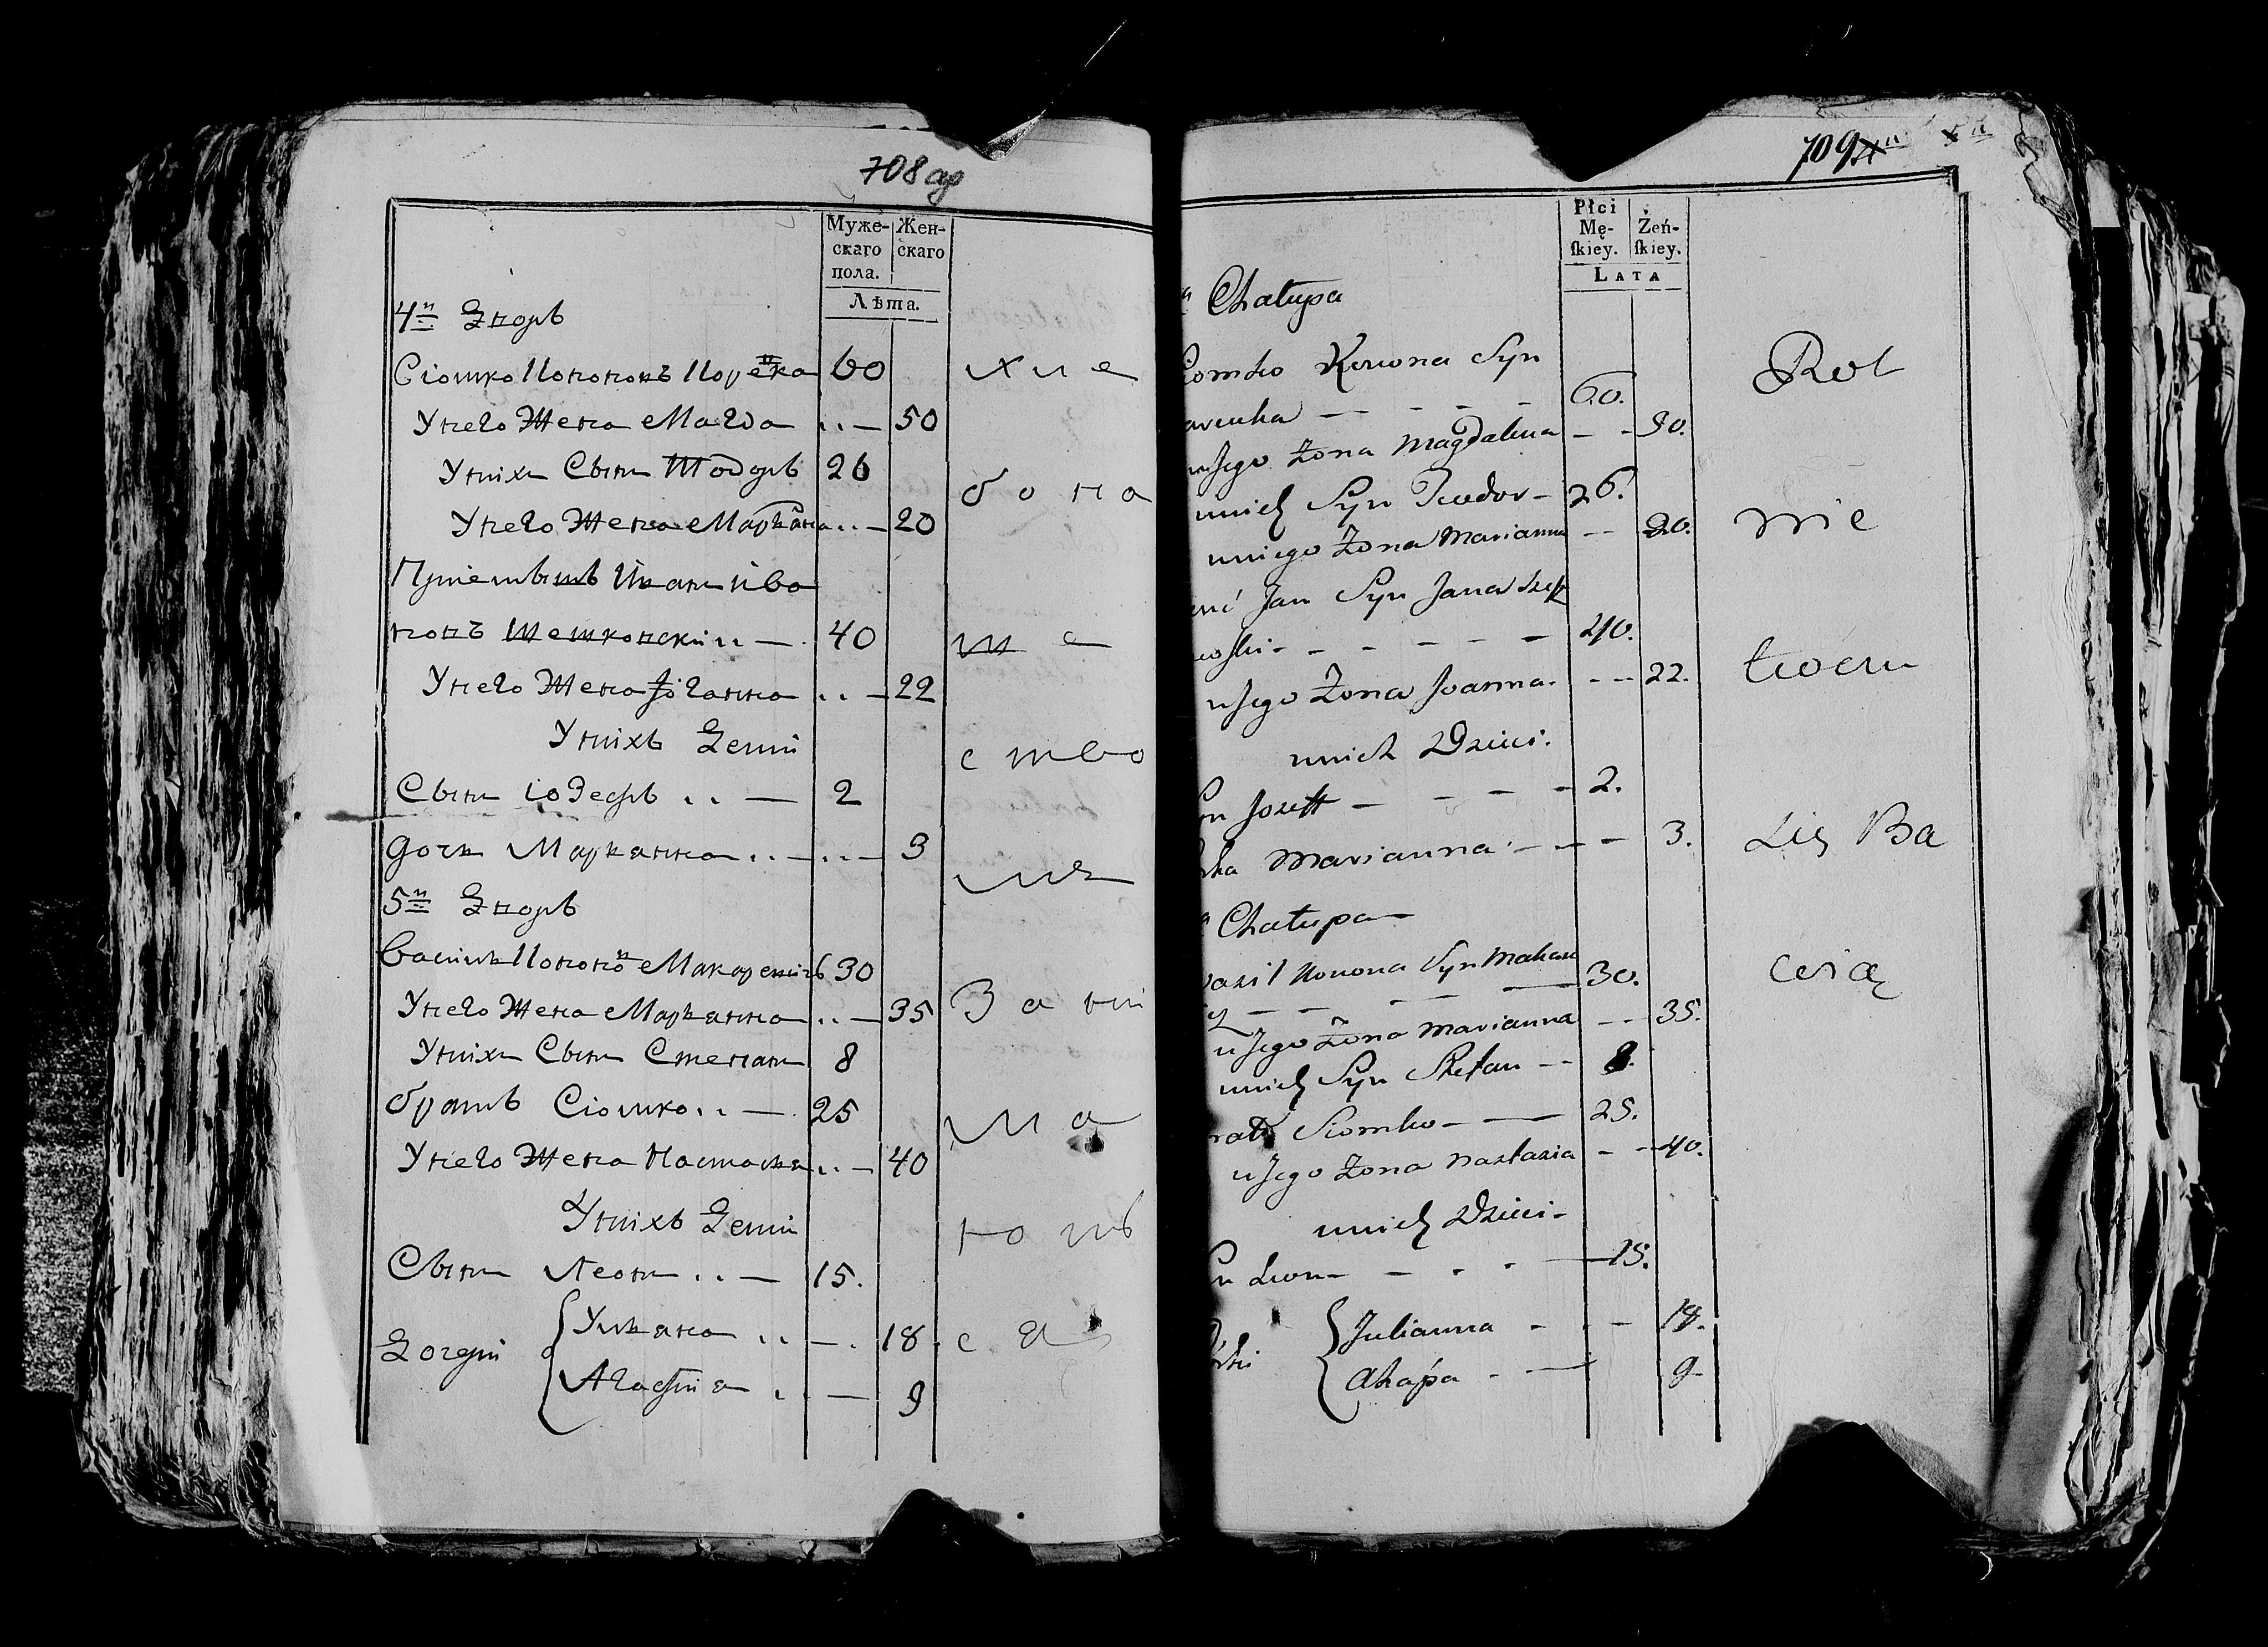 708 ар
Муже-
скаго
пола.
Жен-
скаго
Лѣта.
4й Дворъ
Сіомко Кононовъ 60
Унего Жена Магда .. — 50
Уних Сынъ Тодоръ 26
Унего Жена Марьяна .. — 20
Пріемышъ Иванъ Ива
новъ Шешковскій .. — 40
Унего Жена Іоганна .. — 22
Унихъ Дети
Сынъ Іозефъ .. — 2
Дочь Марьянна .. — .. — 3
5й Дворъ
Василь Кононов Макаревичъ 30
Унего Жена Марьянна .. — 35
Уних Сынъ Степанъ 8
братъ Сіомко .. — 25
Унего Жена Настасья .. — 40
Унихъ Дети
Сынъ Леонъ .. — 15.
Дочери
Ульяна .. — . 18
Агафія . . — 9
хле
бопа
ше
ство
мъ
зани
ма
ютъ
ся
709
Płci
Mę-
ſkiey.
Żeń-
ſkiey.
LATA
Chałupa
Konona Syn
— — - - - 60.
Żona Magdalena — - 50.
unich Syn Teodor — 26.
uniego Żona Marianna -- 20.
Jan Syn Jana
- - - - — 40.
uJego Żona Joanna. - -- 22.
unich Dzieci.
Jozeff — - - - - 2.
Marianna - — - — 3.
Chałupa —
Konona Syn 30.
uJego Żona Marianna -- 35.
unich Syn Stefan -- 8.
Siomko — —— 25.
uJego Żona Nastazia - - 40.
unich Dzieci -
Leon — - . - — 15.
Julianna - . - 18.
Ahapa - — 9.
Rol
nic
twem
Się Ba
wią